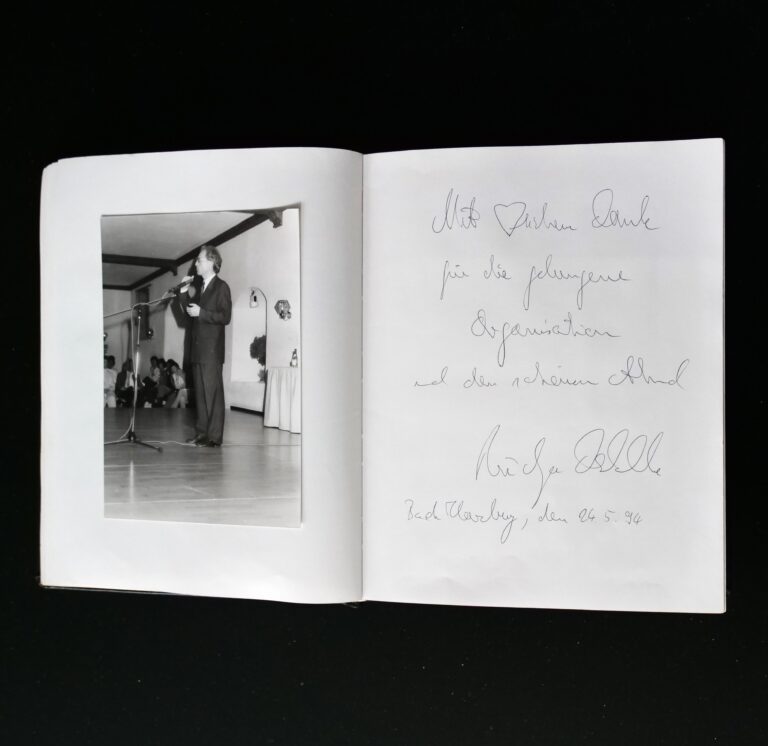 Mit ♡lichem Dank
für die gelungene
Organisation
und den schönen Abend
Rüdiger Dahlke
Bad Herzberg, den 24.5.94